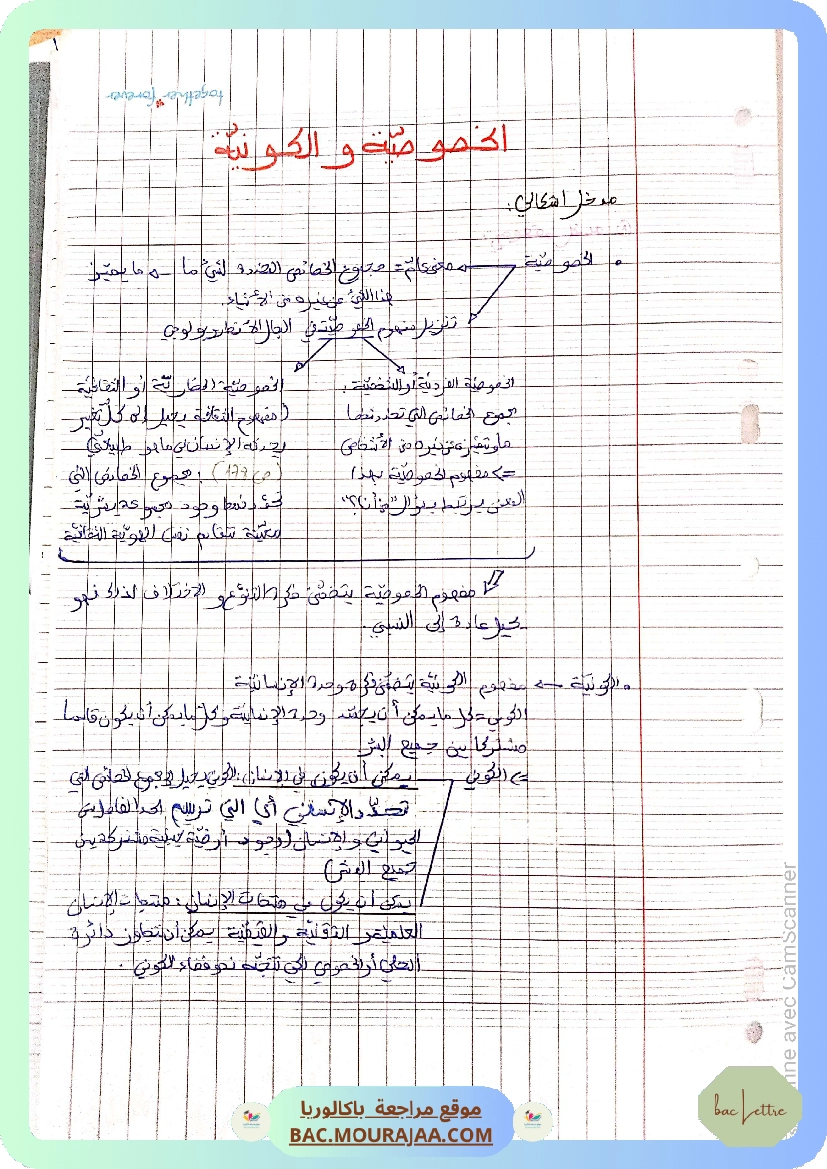 ١
together forever
الخصوصيّة و الكونيّة
مدخل اشكالي.
• الخصوصيّة ← معنى عامّ = مجموع الخصائص المحددة لشيء ما → ما يميّز
هذا الشيء عن غيره من الأشياء.
تنزيل مفهوم الخصوصيّة في المجال الأنتروبولوجي
الخصوصيّة الفرديّة أو الشخصيّة :
مجموع الخصائص التي تحدد شخصا
ما وتميّزه عن غيره من الأشخاص
=> مفهوم الخصوصيّة بهذا
المعنى يرتبط بسؤال "من أنا؟"
الخصوصيّة الحضاريّة أو الثقافيّة
(مفهوم الثقافة يحيل إلى كلّ تغيير
يحدثه الإنسان في ما هو طبيعيّ
(ص 177) : مجموع الخصائص التي
تحدّد نمط وجود مجموعة بشريّة
معيّنة تتقاسم نفس الهويّة الثقافيّة
مفهوم الخصوصيّة يتضمّن فكرة التنوّع و الاختلاف لذلك فهو
يحيل عادة إلى النسبي.
• الكونيّة → مفهوم الكونيّة يتضمّن فكرة وحدة الإنسانيّة
الكوني = كل ما يمكن أن يجسّد وحدة الإنسانيّة وكلّ ما يمكن أن يكون قاسما
مشتركا بين جميع البشر
=> الكوني
يمكن أن يكون في الإنسان : الكوني يحيل إلى مجموع الخصائص التي
تحدّد الإنساني أي التي ترسم الحد الفاصل بين
الحيواني و الإنسان (وجود أرضيّة مشتركة بين
جميع البشر)
يمكن أن يكون في منتجات الإنسان : منتجات الإنسان
العلميّة و التقنيّة والقيميّة يمكن أن تتجاوز دائرة
المحلي أو الخصوصي لكي تتّجه نحو فضاء الكوني.
nne avec CamScanner
bac Lettre
موقع مراجعة باكالوريا
BAC.MOURAJAA.COM